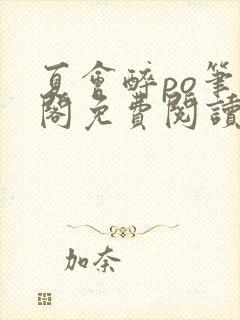 夏會醉po筆
閣免費閱讀
加奈